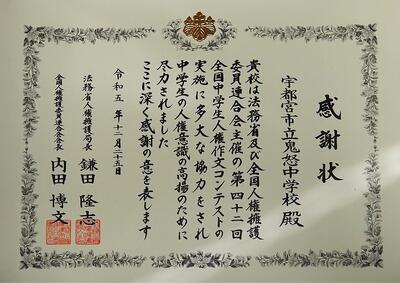 感謝状
宇都宮市立鬼怒中学校 殿
貴校は法務省及び全国人権擁護
委員連合会主催の第四十二回
全国中学生人権作文コンテストの
実施に多大な協力をされ
中学生の人権意識の高揚のために
尽力されました
ここに深く感謝の意を表します
令和五年十二月二十五日
法務省人権擁護局長 鎌田 隆志
全国人権擁護委員連合会会長 内田 博文